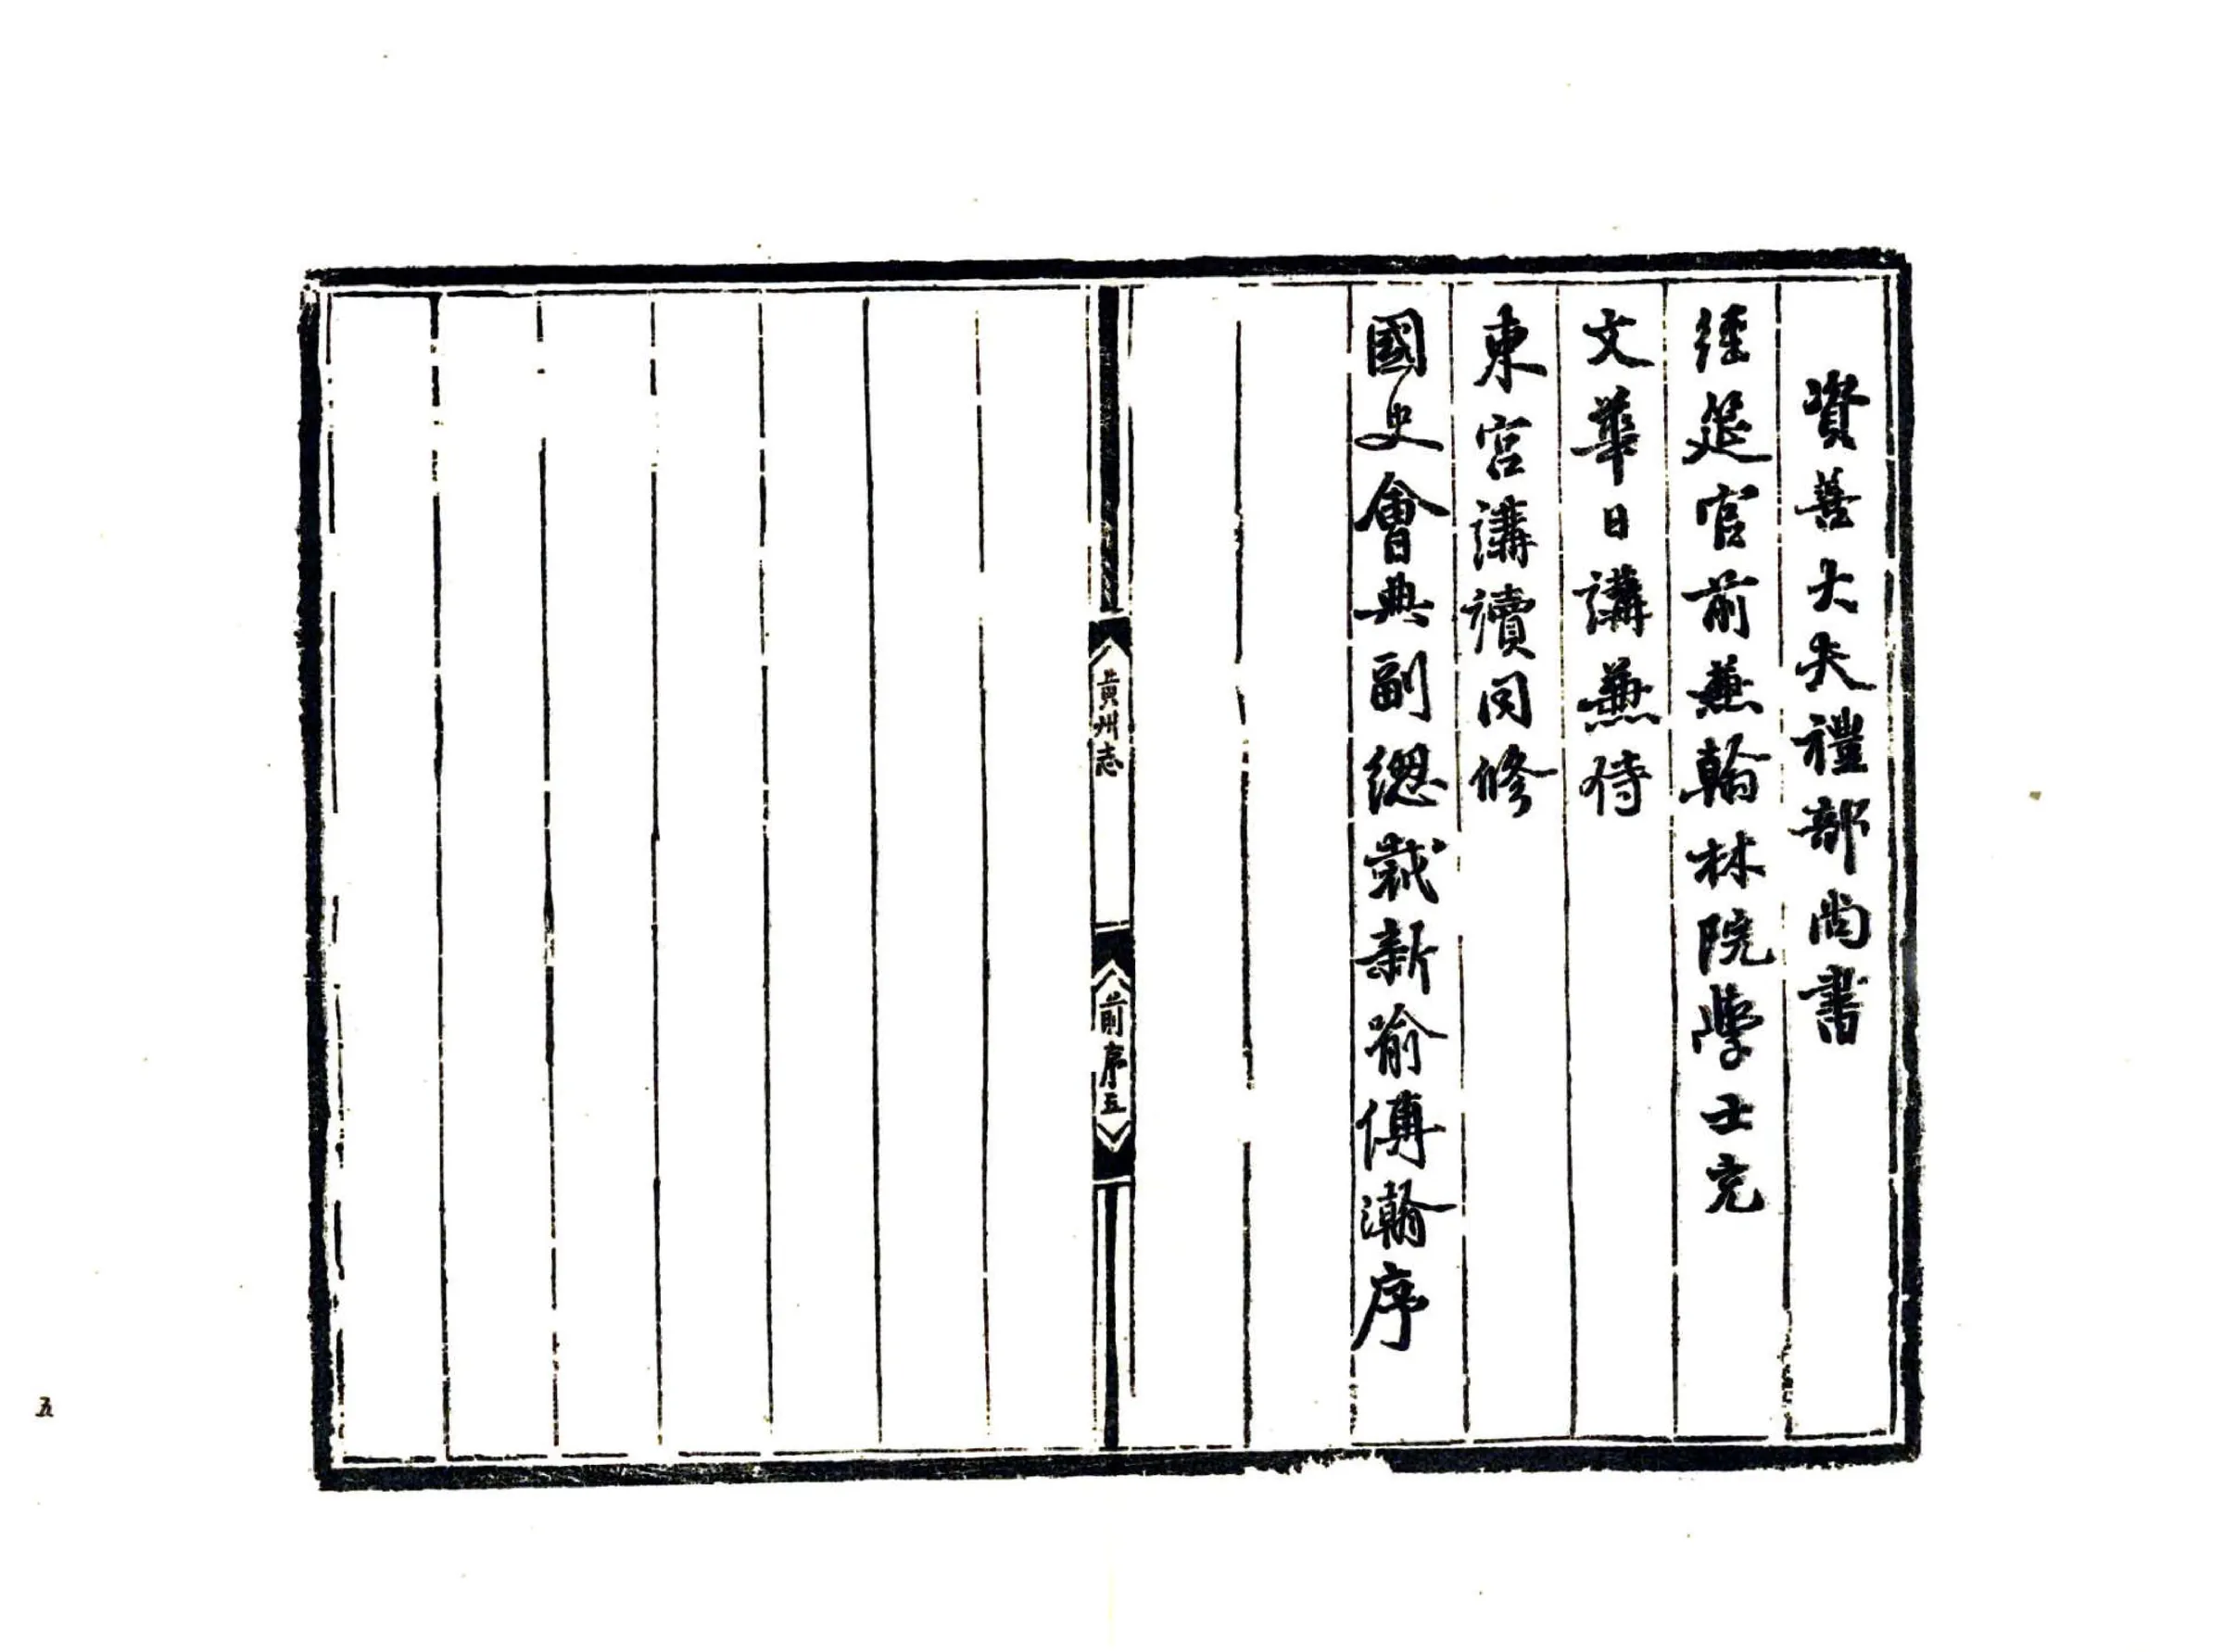 資善大夫禮部尚書
經筵官前兼翰林院學士充
文華日講兼侍
東宮講讀同修
國史會典副總裁新喻傅瀚序
黃州志
前序五
五